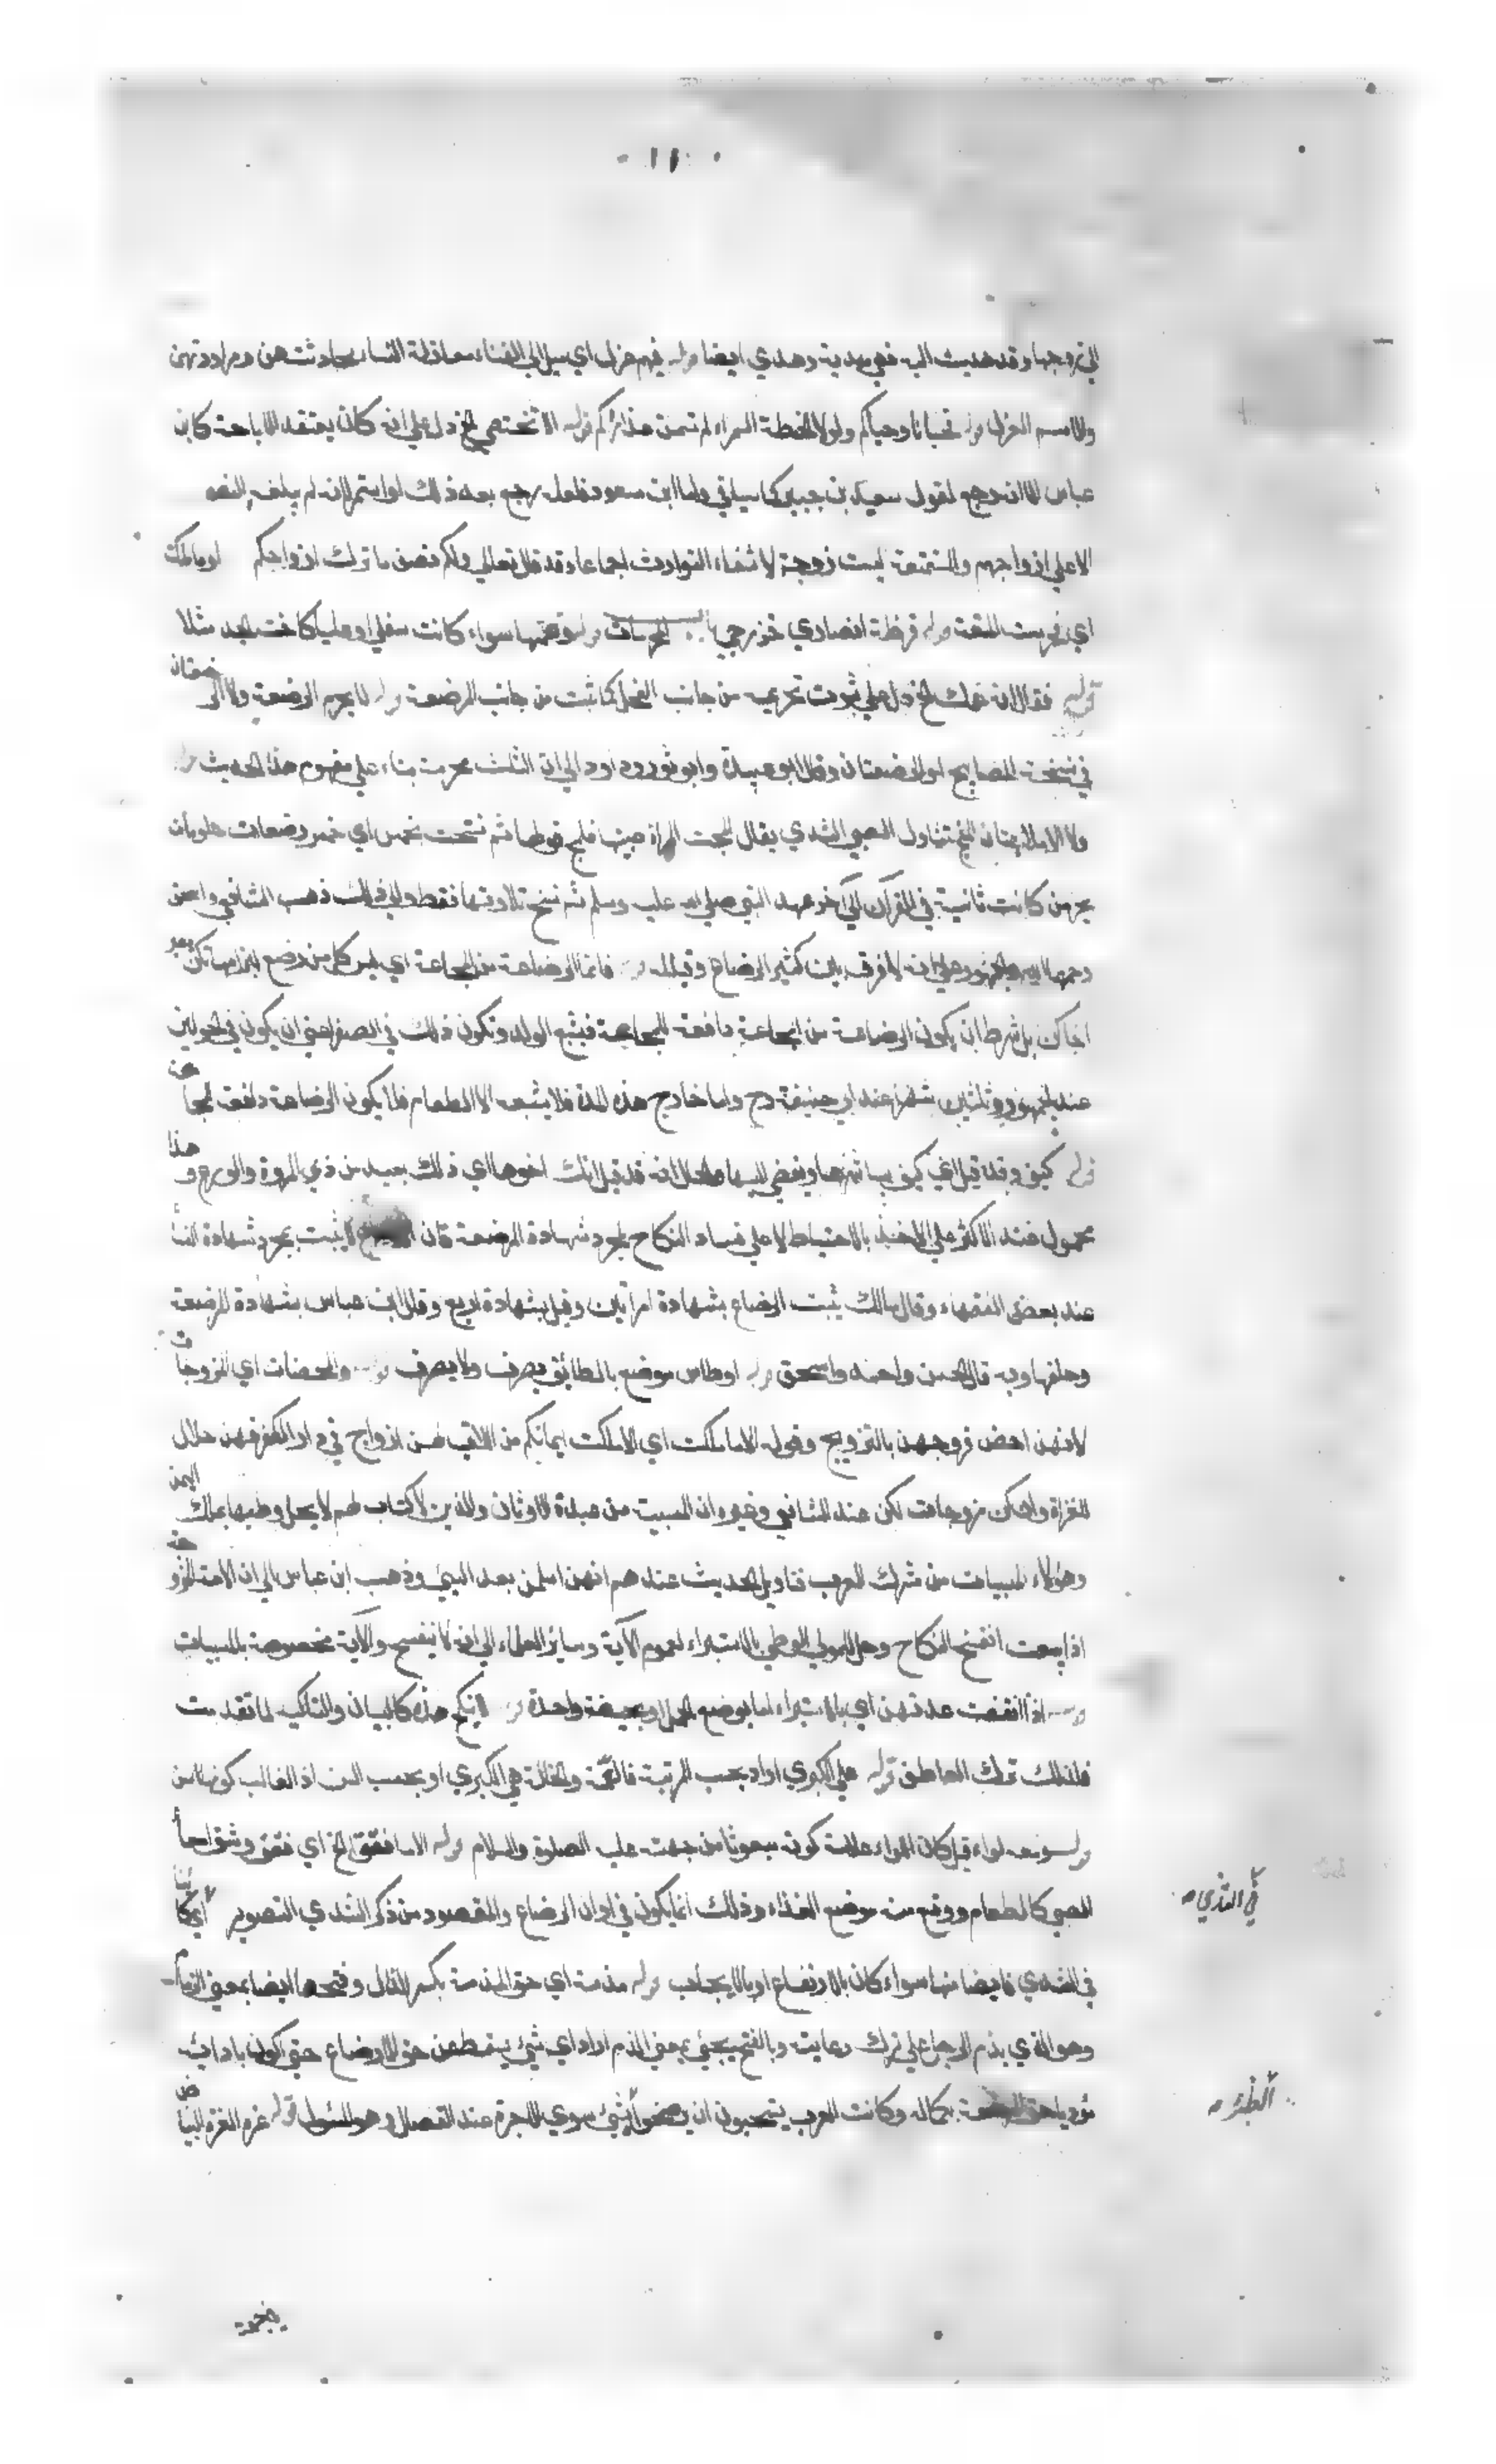 ١١٠
الي زوجها وقد هديت اليه فهي مهدية وهدي ايضا قوله فيهم غزل اي ميل الي الغناء مغازلة النساء محادثتهن ومراودتهن
والاسم الغزل قوله فحيانا وحياكم ولولا الحنطة السمراء لم تسمن عذاراكم قوله الا نختصي الخ دل علي انه كان يعتقد الاباحة كابن
عباس الا انه رجع لقول سعيد بن جبير كما سياتي واما ابن مسعود فلعله رجع بعد ذلك او استمر لانه لم يبلغه النص
الا علي ازواجهم والمتمتعة ليست زوجة لانتفاء التوارث اجماعا وقد قال تعالي ولكم نصف ما ترك ازواجكم او ما ملكت
قوله قرظة انصاري خزرجي باب المحرمات قوله وعمتها سواء كانت سفلي او عليا كاخت الجد مثلا
قوله فقال انه عمك الخ دل علي ثبوت تحريمه من جانب الفحل كما ثبت من جانب المرضعة قوله لا يحرم الرضعة ولا الرضعتان
في نسخة المصابيح او الرضعتان وقال ابو عبيدة وابو ثور وداود الي ان الثلث محرمة بناء علي مفهوم هذا الحديث قوله
ولا الاملاجتان الملج تناول الصبي الثدي يقال املجت المراة صبيها فلج قولها ثم نسخت بخمس اي خمس رضعات معلومات
يحرمن كانت ثانية في القرآن الي آخر عهد النبي صلي الله عليه وسلم ثم نسخ تلاوتها فقط والي ذلك ذهب الشافعي واسحق
رحمهما الله والجمهور علي انه لا فرق بين كثير الرضاع وقليله قوله فانما الرضاعة من المجاعة اي ليس كل من رضع لبن امهاتكن يصير
اخاكن بل شرط ان يكون الرضاعة من المجاعة دافعة للمجاعة فيشبع الولد وتكون ذلك في الصغر اعني ان يكون في الحولين
عند الجمهور وثلثين شهرا عند ابي حنيفة رح واما خارج هذه المدة فلا يشبعه الا الطعام فلا يكون الرضاعة دافعة لمجاعته
قوله كيف وقد قيل اي كيف يباشرها ويفضي اليها والحال انه قد قيل انك اخوها اي ذلك بعيد من ذي المروة والورع وهذا
محمول عند الاكثر علي الاخذ بالاحتياط لا علي فساد النكاح بمجرد شهادة المرضعة فان الرضاع لا يثبت بمجرد شهادة النسا
عند بعض الفقهاء وقال مالك يثبت الرضاع بشهادة امراتين وقيل بشهادة اربع وقال ابن عباس بشهادة المرضعة
وحلفها وبه قال الحسن واحمد واسحق قوله اوطاس موضع بالطائف يصرف ولا يصرف قوله والمحصنات اي المزوجات
لانهن احصن فروجهن بالتزويج وقوله الا ما ملكت اي الا ما ملكت ايمانكم من اللاتي لهن ازواج في دار الكفر فهن حلال
للغزاة وان كن مزوجات لكن عند الشافعي وغيره ان المسبية من عبدة الاوثان والذين لا كتاب لهم لا يحل وطيها بملك اليمين
وهؤلاء المسبيات من مشرك العرب فتاويل الحديث عندهم انهن اسلمن بعد السبي وذهب ابن عباس الي ان الامة المزوجة
اذا بيعت انفسخ النكاح وحل للمولي الوطي بالاستبراء لعموم الآية وسائر العلماء الي انه لا ينفسخ والآية مخصوصة بالمسبيات
قوله اذا انقضت عدتهن اي بالاستبراء اما بوضع الحمل او بحيضة واحدة قوله لا ينكح هذه كالبيان والتاكيد لما تقدمت
فلذلك ترك العاطف قوله علي الكبري اراد بحسب المرتبة فالعمة والخالة هي الكبري او بحسب السن اذ الغالب كونهما اسن
قوله ومعه لواء قيل كان اللواء علامة كونه مبعوثا من جهته عليه الصلوة والسلام قوله الا ما فتق الخ اي فتق وشق امعاء
الصبي كالطعام ووقع منه موضع الغذاء وذلك انما يكون في اوان الرضاع والمقصود من ذكر الثدي التصوير اي كائنا
في الثدي فايضا منها سواء كان بالارتضاع او بالايجاب قوله مذمة اي حق المذمة بكسر الذال وفتحها ايضا بمعني الذمام
وهو الذي يذم الرجل علي ترك رعايته وبالفتح يجئ بمعني الذم اراد اي شئ يسقط عني حق الارضاع حتي اكون بادائه
مؤديا حق المرضعة بكماله وكانت العرب يستحبون ان يرضخوا بشئ سوي الاجرة عند الفصال وهو المسئول قوله غرة الغرة البياض
في الثدي
الظئر